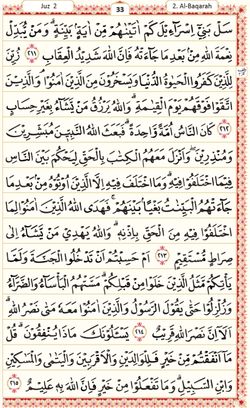 Juz 2
33
2. Al-Baqarah
سَلْ بَنِىٓ إِسْرَآءِيلَ كَمْ ءَاتَيْنَٰهُم مِّنْ ءَايَةٍۭ بَيِّنَةٍ ۗ وَمَن يُبَدِّلْ
نِعْمَةَ ٱللَّهِ مِنۢ بَعْدِ مَا جَآءَتْهُ فَإِنَّ ٱللَّهَ شَدِيدُ ٱلْعِقَابِ ٢١١ زُيِّنَ
لِلَّذِينَ كَفَرُوا۟ ٱلْحَيَوٰةُ ٱلدُّنْيَا وَيَسْخَرُونَ مِنَ ٱلَّذِينَ ءَامَنُوا۟ ۘ وَٱلَّذِينَ
ٱتَّقَوْا۟ فَوْقَهُمْ يَوْمَ ٱلْقِيَٰمَةِ ۗ وَٱللَّهُ يَرْزُقُ مَن يَشَآءُ بِغَيْرِ حِسَابٍ
٢١٢ كَانَ ٱلنَّاسُ أُمَّةً وَٰحِدَةً فَبَعَثَ ٱللَّهُ ٱلنَّبِيِّـۧنَ مُبَشِّرِينَ
وَمُنذِرِينَ وَأَنزَلَ مَعَهُمُ ٱلْكِتَٰبَ بِٱلْحَقِّ لِيَحْكُمَ بَيْنَ ٱلنَّاسِ
فِيمَا ٱخْتَلَفُوا۟ فِيهِ ۚ وَمَا ٱخْتَلَفَ فِيهِ إِلَّا ٱلَّذِينَ أُوتُوهُ مِنۢ بَعْدِ مَا
جَآءَتْهُمُ ٱلْبَيِّنَٰتُ بَغْيًۢا بَيْنَهُمْ ۖ فَهَدَى ٱللَّهُ ٱلَّذِينَ ءَامَنُوا۟ لِمَا
ٱخْتَلَفُوا۟ فِيهِ مِنَ ٱلْحَقِّ بِإِذْنِهِۦ ۗ وَٱللَّهُ يَهْدِى مَن يَشَآءُ إِلَىٰ
صِرَٰطٍ مُّسْتَقِيمٍ ٢١٣ أَمْ حَسِبْتُمْ أَن تَدْخُلُوا۟ ٱلْجَنَّةَ وَلَمَّا
يَأْتِكُم مَّثَلُ ٱلَّذِينَ خَلَوْا۟ مِن قَبْلِكُم ۖ مَّسَّتْهُمُ ٱلْبَأْسَآءُ وَٱلضَّرَّآءُ
وَزُلْزِلُوا۟ حَتَّىٰ يَقُولَ ٱلرَّسُولُ وَٱلَّذِينَ ءَامَنُوا۟ مَعَهُۥ مَتَىٰ نَصْرُ ٱللَّهِ ۗ
أَلَآ إِنَّ نَصْرَ ٱللَّهِ قَرِيبٌ ٢١٤ يَسْـَٔلُونَكَ مَاذَا يُنفِقُونَ ۖ قُلْ
مَآ أَنفَقْتُم مِّنْ خَيْرٍ فَلِلْوَٰلِدَيْنِ وَٱلْأَقْرَبِينَ وَٱلْيَتَٰمَىٰ وَٱلْمَسَٰكِينِ
وَٱبْنِ ٱلسَّبِيلِ ۗ وَمَا تَفْعَلُوا۟ مِنْ خَيْرٍ فَإِنَّ ٱللَّهَ بِهِۦ عَلِيمٌ ٢١٥